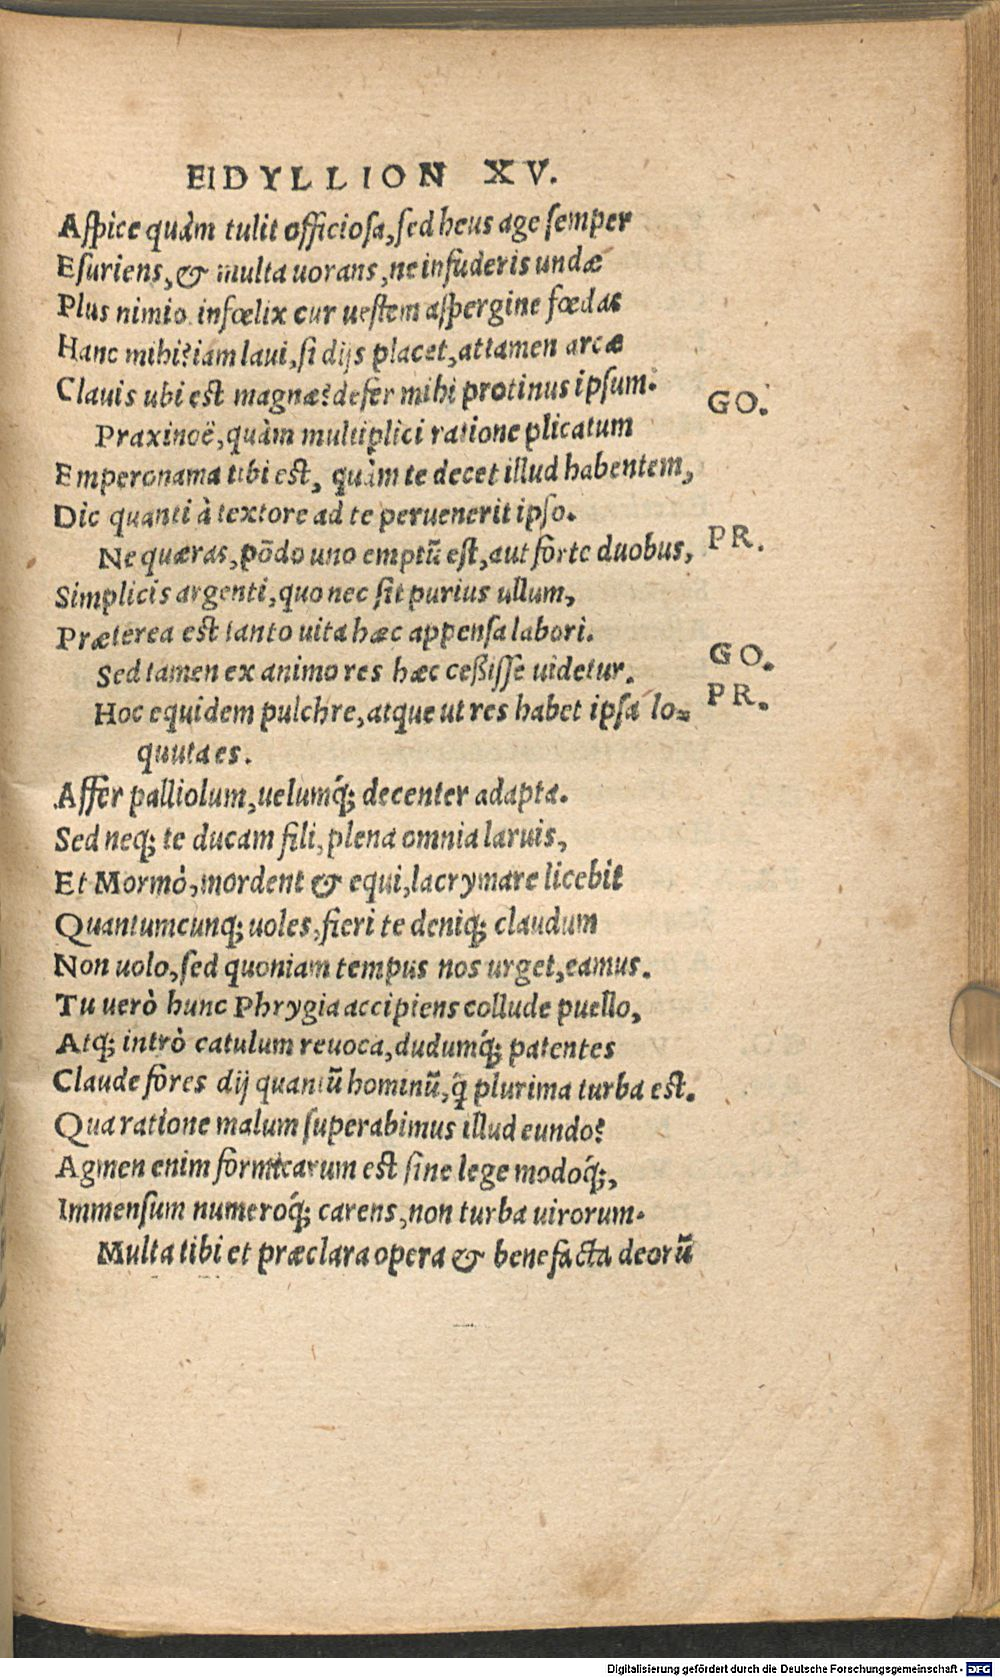 EIDYLLION XV.
Aſpice quàm tulit officioſa, ſed heus age ſemper
Eſuriens, & multa uorans, ne infuderis undæ
Plus nimio. infœlix cur ueſtem aſpergine fœdas
Hanc mihi? iam laui, ſi dijs placet, attamen arcæ
Clauis ubi eſt magnæ? defer mihi protinus ipſum.
GO.
Praxinoë, quàm multiplici ratione plicatum
Emperonama tibi eſt, quàm te decet illud habentem,
Dic quanti à textore ad te peruenerit ipſo.
PR.
Ne quæras, põdo uno emptũ eſt, aut forte duobus,
Simplicis argenti, quo nec ſit purius ullum,
Præterea eſt tanto uita hæc appenſa labori.
GO.
Sed tamen ex animo res hæc ceßiſſe uidetur.
PR.
Hoc equidem pulchre, atque ut res habet ipſa lo=
quuta es.
Affer palliolum, uelumq́; decenter adapta.
Sed neq; te ducam fili, plena omnia laruis,
Et Mormò, mordent & equi, lacrymare licebit
Quantumcunq; uoles, fieri te deniq; claudum
Non uolo, ſed quoniam tempus nos urget, eamus.
Tu uerò hunc Phrygia accipiens collude puello,
Atq; intrò catulum reuoca, dudumq́; patentes
Claude fores dij quantũ hominũ, q̃ plurima turba eſt.
Qua ratione malum ſuperabimus illud eundo?
Agmen enim formicarum eſt ſine lege modoq́;,
Immenſum numeroq́; carens, non turba uirorum.
Multa tibi et præclara opera & benefacta deorũ
Digitalisierung gefördert durch die Deutsche Forschungsgemeinschaft - DFG